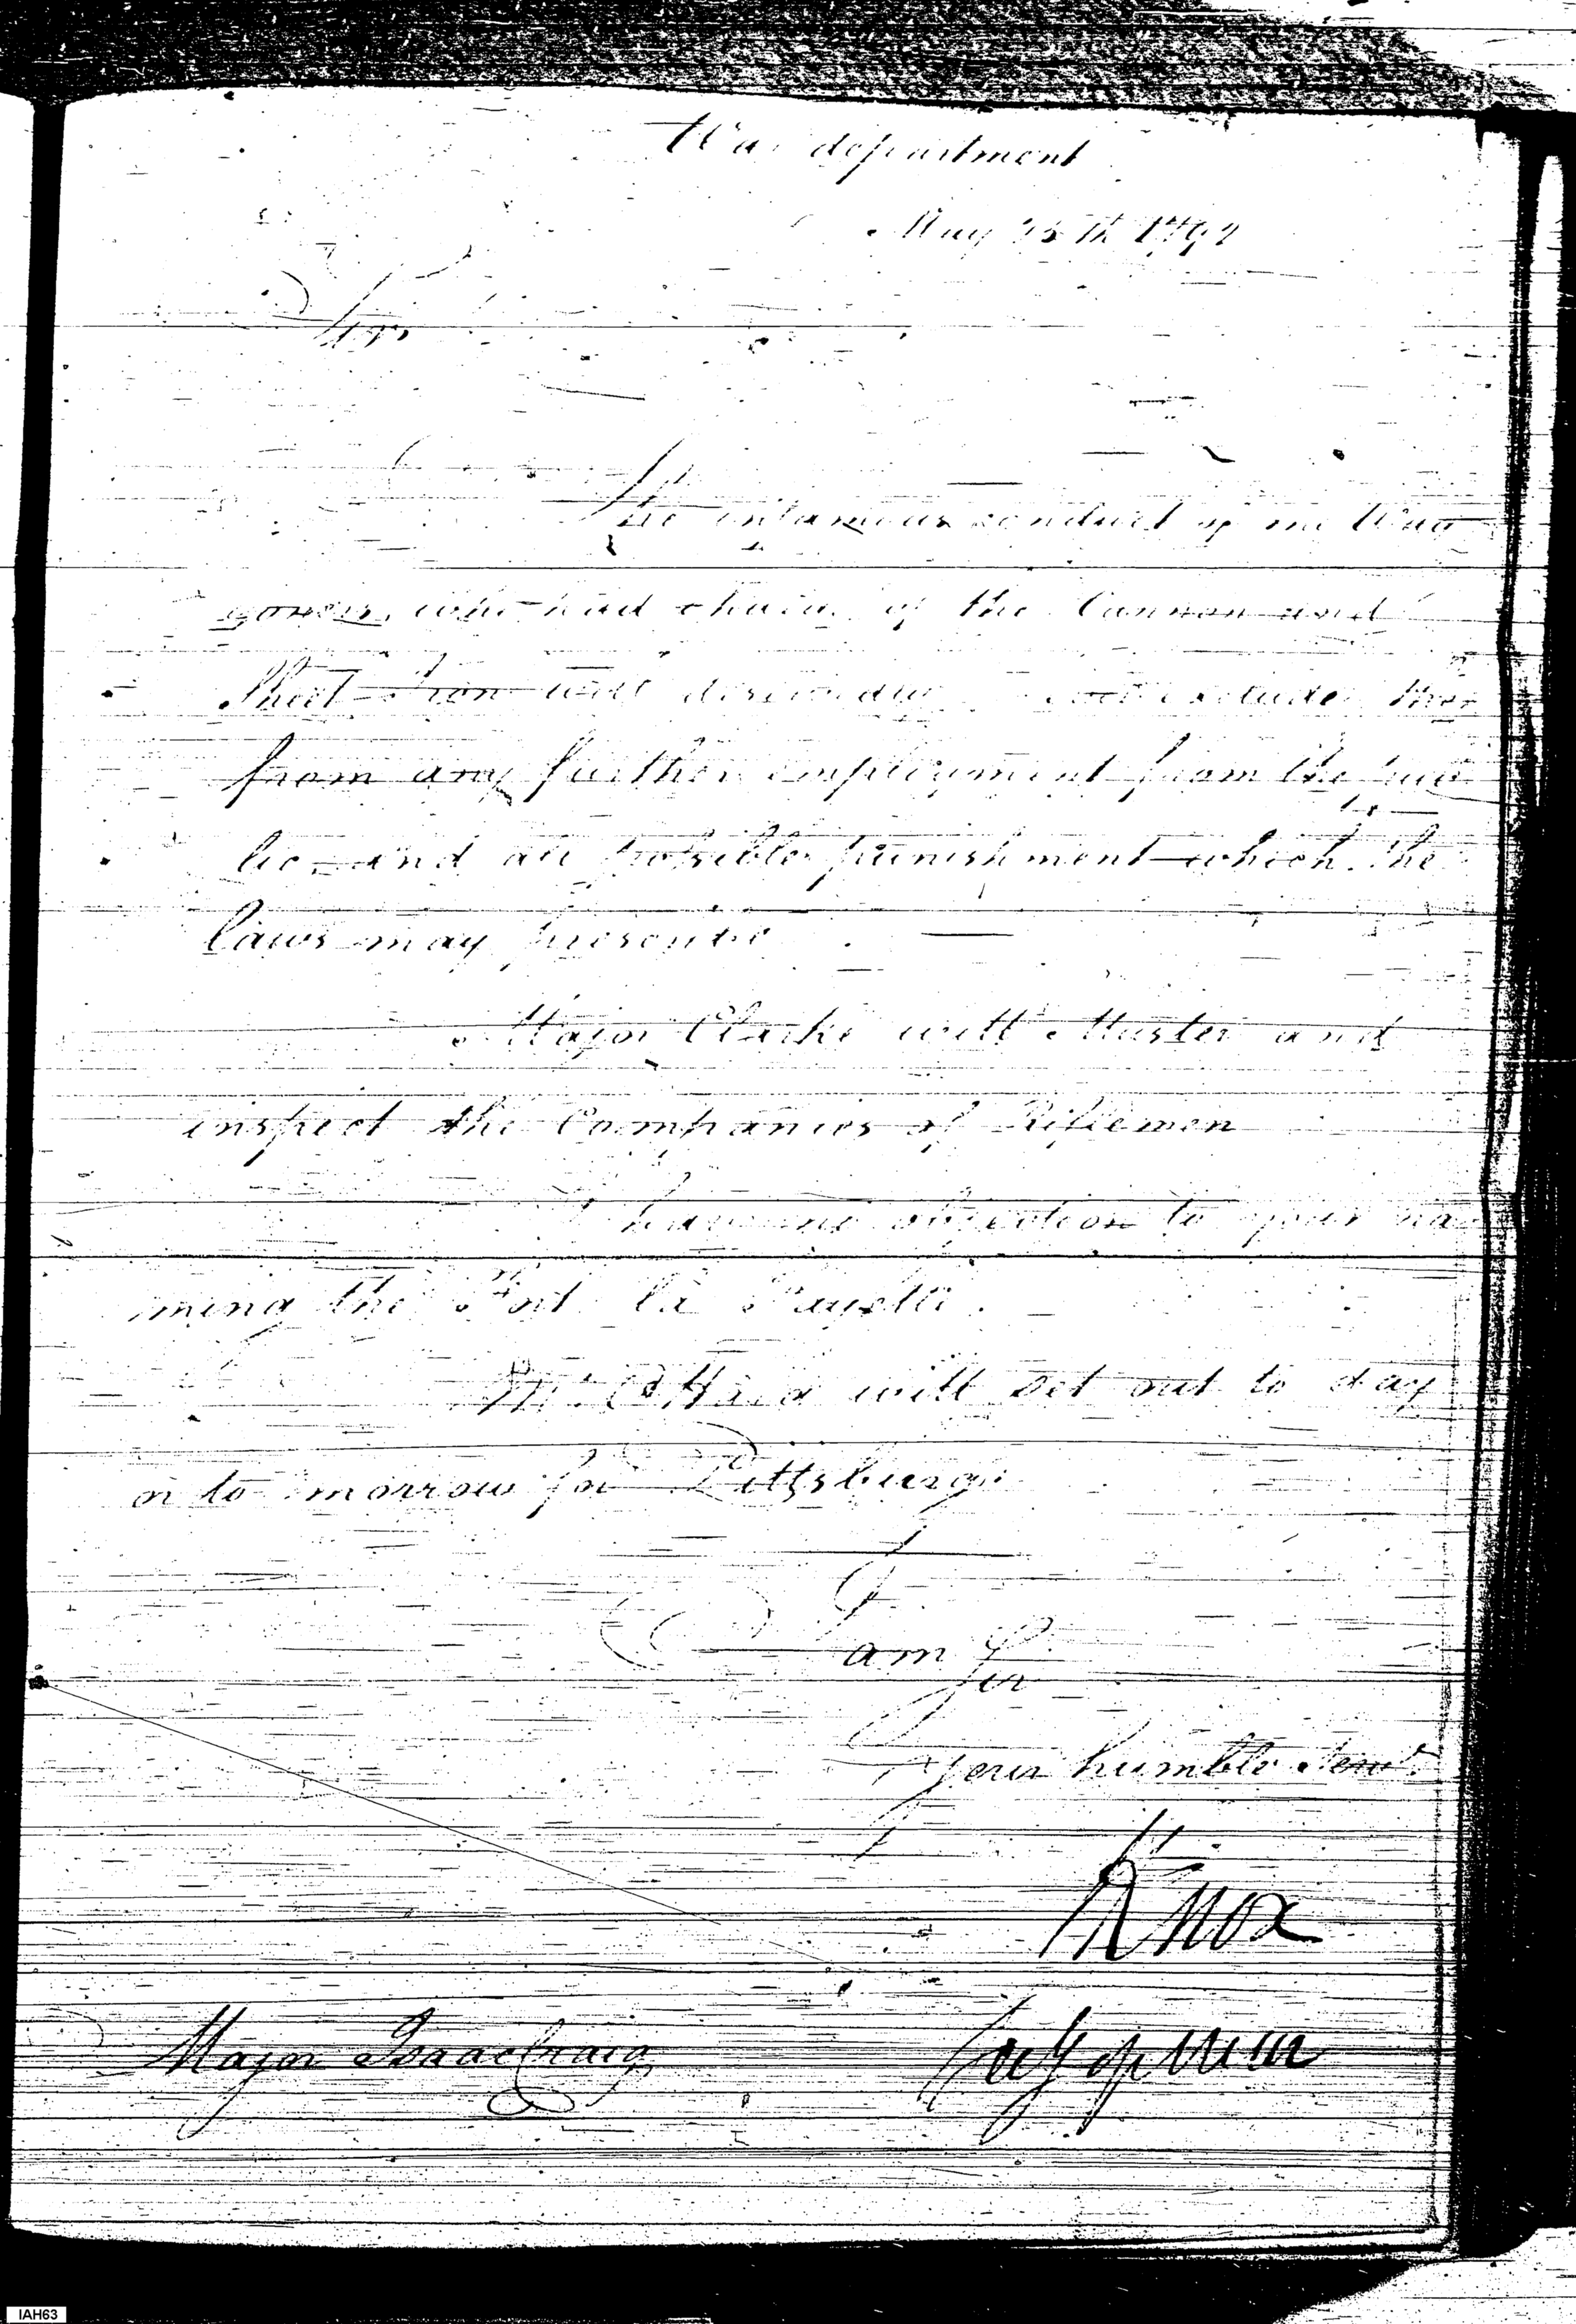 War department
May 25th 1792
Sir
The infamous conduct of the Wag
goners, who had charge of the Cannon and
Sheet Iron will deservedly exclude them
from any further employment from the pub
lic and all possible punishment which the
laws may prescribe.
Major Clarke will Muster and
inspect the Companies of Riflemen
I have no objection to your na
ming the Fort la Fayette.
Mr. O'Hara will set out to day
or to morrow for Pittsburg.
I
am Sir
Your humble Servt.
H Knox
Major Isaac Craig
IAH63